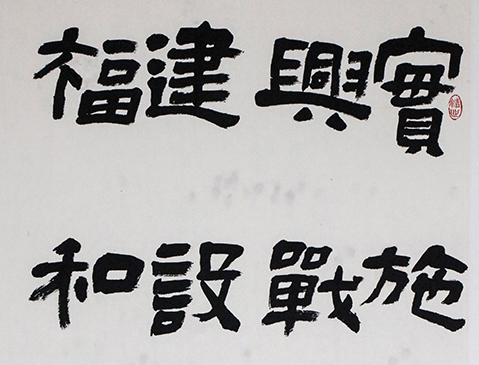 實施
興戰
建設
福和